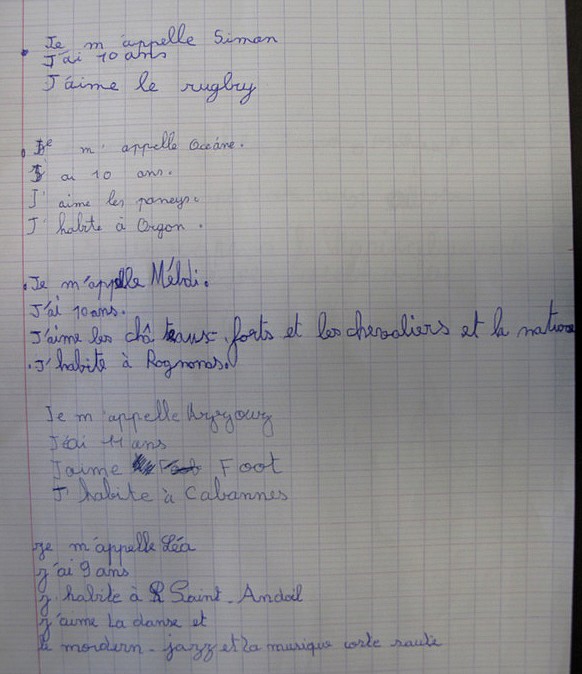 Je m'appelle Simon
J'ai 10 ans
J'aime le rugby
Je m'appelle Océane.
J'ai 10 ans.
J'aime les poneys.
J'habite à Orgon.
Je m'appelle Méhdi.
J'ai 10 ans.
J'aime les châteaux forts et les chevaliers et la nature
J'habite à Rognonas.
Je m'appelle
J'ai 11 ans
J'aime Foot
J'habite à Cabannes
Je m'appelle Léa
J'ai 9 ans
J'habite à Saint-Andoil
J'aime la danse et
le mordern-jazz et la musique corde